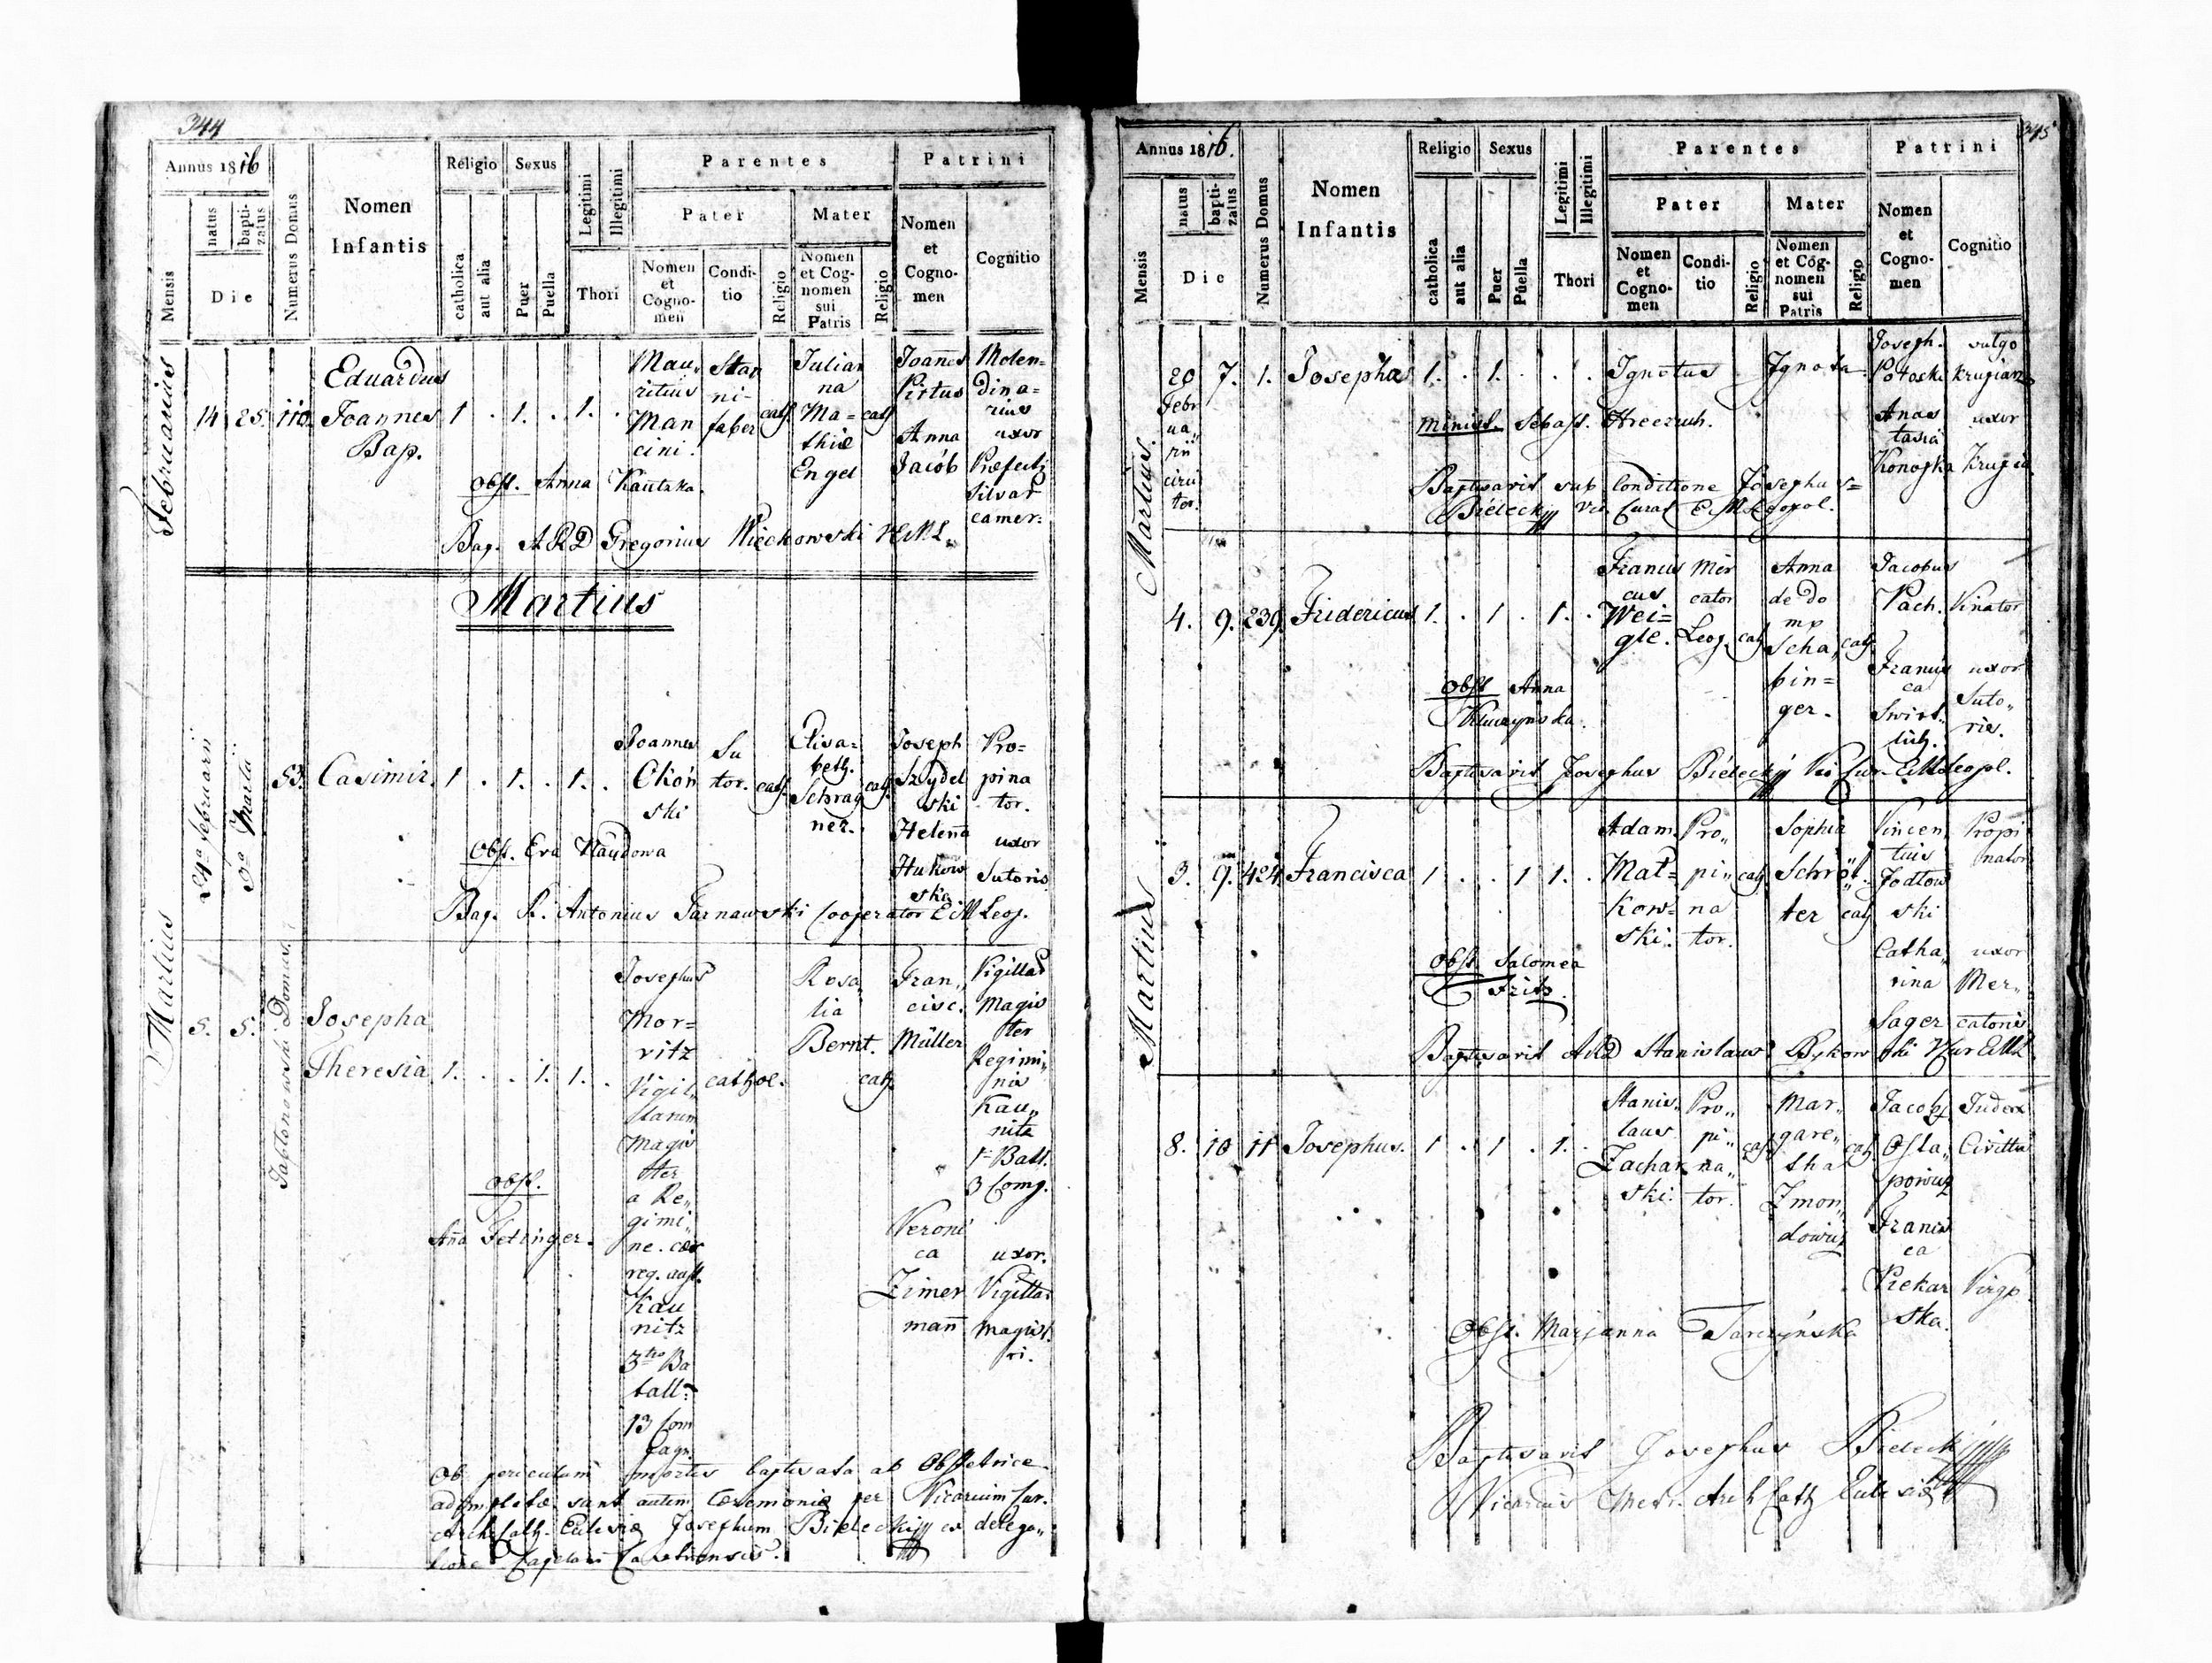 344
Annus 1816
Mensis
natus
bapti-
zatus
Die
Numerus Domus
Nomen
Infantis
Religio
catholica
aut alia
Sexus
Puer
Puella
Legitimi
Illegitimi
Thori
Parentes
Pater
Nomen
et
Cogno-
men
Condi-
tio
Religio
Mater
Nomen
et Cog-
nomen
sui
Patris
Religio
Patrini
Nomen
et
Cogno-
men
Cognitio
Februarius
14 25. 110.
Eduardus
Joannes
Bap.
1 . 1. . 1. .
Mau,
ritius
Man
cini.
Stan
ni-
faber
cath.
Julian
na
Ma=
thiæ
Engel
cath
Joanes
Pirtus
Anna
Jacób
Molen=
dina=
rius
uxor
Præfecti
Silvar
camer:
Obst. Anna Kautzka.
Bap. ARD Gregorius Wieckowski
Martius
Martius
24a februarii
5a Martii
53. Casimir. 1 . 1. . 1. .
Joannes
Okoń
ski
Su
tor.
cath.
Elisa=
beth.
Schrag
ner.
cath.
Joseph
Szydel
ski
Helena
Hukow
ska
Pro=
pina
tor.
uxor
Sutoris
Obst. Eva Naudowa
Bap. R. Antonius Tarnawski Cooperator EM Leop.
5. 5.
Jablonowski Domus.
Josepha
Theresia 1. . . 1. 1. .
Josephus
Mor=
ritz
Vigil,
larum
Magis
ter
a Re,,
gimi,,
ne. cæs
reg. aust.
Kau
nitz
3tio Ba
tall:
13 Com
pagn.
cathol.
Rosa,
lia
Bernt.
cath.
Fran,,
cisc.
Müller
Veroni
ca
Zimer
mann
Vigillar
Magis
ter
Regimi,,
nis
Kau,,
nitz
1. Batt.
3 Comp.
uxor.
Vigillar
magist.
ri.
Obst.
Ana Fetinger.
Ob periculum mortis baptisata ab Obstetrice
adimpletæ sunt autem Ceremoniæ per Vicarium Cur.
Arch. Cath. Eclesiæ Josephum Bielecki ex delega,,
tione Capelani Castrensis.
345
Annus 1816.
Mensis
natus
bapti-
zatus
Die
Numerus Domus
Nomen
Infantis
Religio
catholica
aut alia
Sexus
Puer
Puella
Legitimi
Illegitimi
Thori
Parentes
Pater
Nomen
et
Cogno-
men
Condi-
tio
Religio
Mater
Nomen
et Cog-
nomen
sui
Patris
Religio
Patrini
Nomen
et
Cogno-
men
Cognitio
Martius.
20
Febr
ua,,
rii
circi
ter.
7. 1. Josephus 1. . 1. . . . Ignotus Ignota
Joseph.
Potocki
Anas
tasia
Konopka
vulgo
uxor
Minist. Sebast. Hreczuch.
Baptisavit sub Conditione Josephus=
Bielecky Vic. Curat E. M. Leopol.
4. 9. 239. Fridericus 1. . 1 . 1. .
Francis
cus
Wei=
gle.
Mer
cator
Leop.
cath
Anna
de do
mo
Scha,
bin=
ger.
cath
Jacobus
Pach.
Francis
ca
Swiet,,
lich.
Vinator
uxor
Suto,,
ris.
Obst Anna
Kluczynska.
Baptisavit Josephus Bielecky Vic Cur. EM Leopol.
Martius
3. 9. 424. Francisca 1 . . 1 1. .
Adam.
Mat=
kow=
ski.
Pro,,
pi,,
na
tor.
cath
Sophia
Schröt.
ter
cath
Vincen,
tius
Jodtow
ski
Catha,
rina
Sager
Propi
nator
uxor
Mer,,
catoris
Obst. Salomea
Fritz.
Baptisavit ARD Stanislaus Bykowski VCur EML
8. 10 11 Josephus. 1 . 1 . 1. .
Stanis,
laus
Zachar
ski.
Pro,,
pi,,
na,,
tor.
cath
Mar,,
gare,,
tha
Zmon,,
dowicz
cath
Jacob
Osta,,
powicz
Francis
ca
Piekar
ska.
Judex
Civitta
Virgo
Obst. Marjanna Tarczyńska
Baptisavit Josephus Bielecki
Vicarius Metr. Arch Cath Eclesiæ